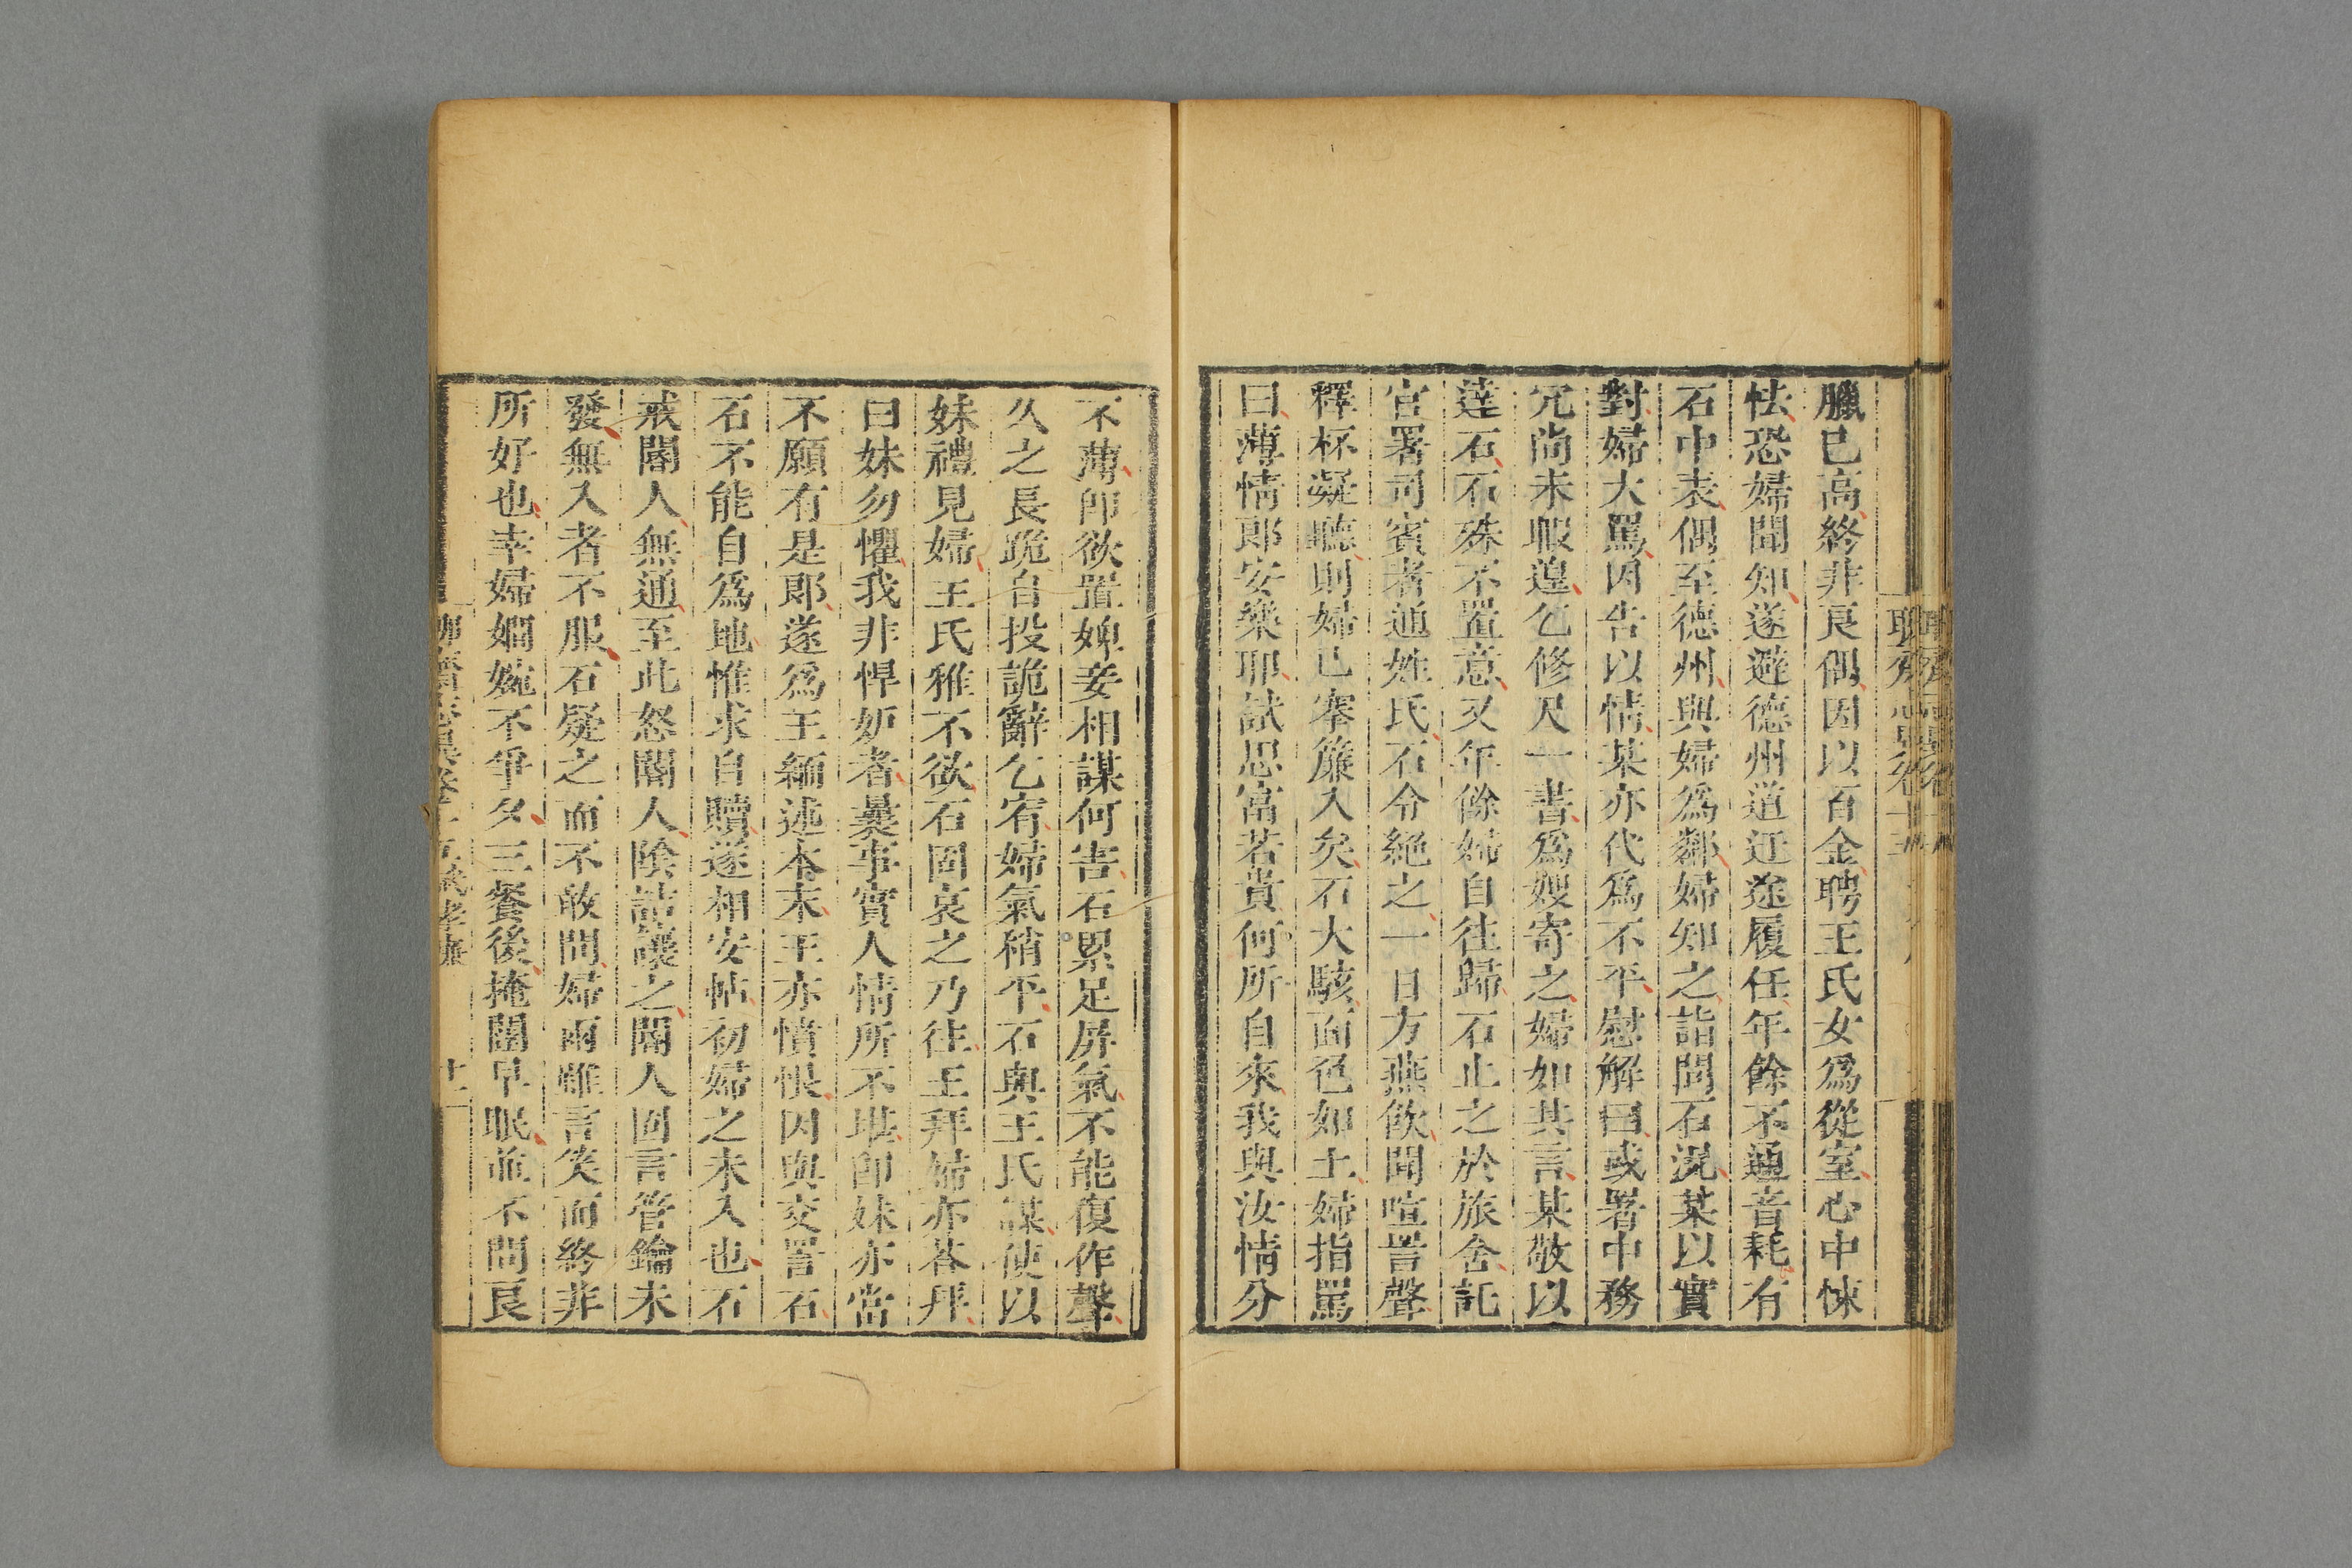 臘已高終非良偶因以百金聘王氏女爲從室心中悚
怯恐婦聞知遂避德州道迂途履任年餘不通音耗有
石中表偶至德州與婦爲鄰婦知之詣問石況某以實
對婦大罵因告以情某亦代爲不平慰解曰或署中務
冗尚未暇遑乞修尺一書爲嫂寄之婦如其言某敬以
達石石殊不置意又年餘婦自往歸石止之於旅舍託
官署司賓者通姓氏石令絕之一日方燕飲聞喧詈聲
釋杯凝聽則婦已搴簾入矣石大駭面色如土婦指罵
曰薄情郎安樂耶試思富若貴何所自來我與汝情分
不薄卽欲置婢妾相謀何害石累足屏氣不能復作聲
久之長跪自投詭辭乞宥婦氣稍平石與王氏謀使以
妹禮見婦王氏雅不欲石固哀之乃往王拜婦亦荅拜
曰妹勿懼我非悍妒者曩事實人情所不堪卽妹亦當
不願有是郎遂爲王緬述本末王亦憤恨因與交詈石
石不能自爲地惟求自贖遂相安帖初婦之未入也石
戒閽人無通至此怒閽人陰詰讓之閽人固言管鑰未
發無入者不服石疑之而不敢問婦兩雖言笑而終非
所好也幸婦嫺婉不爭夕三餐後掩闥早眠並不問良